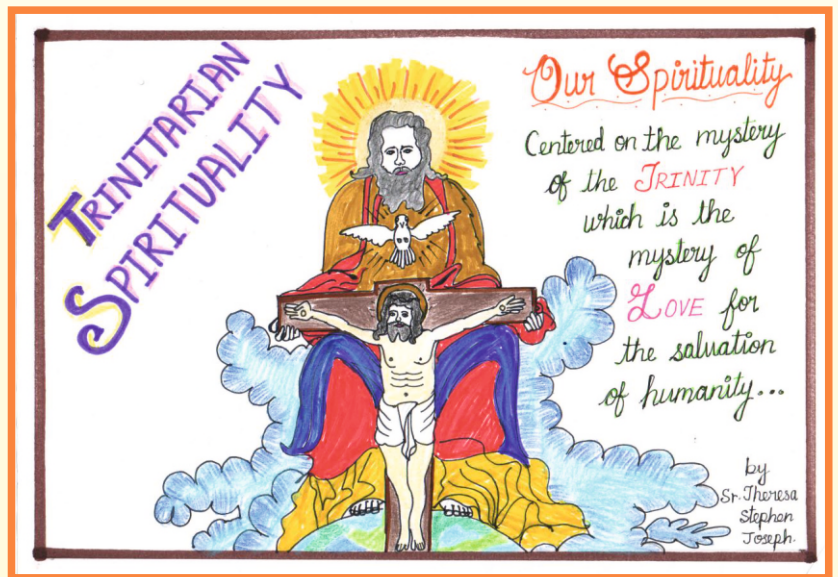 TRINITARIAN
SPIRITUALITY
Our Spirituality
Centered on the mystery
of the TRINITY
which is the
mystery of
LOVE for
the salvation
of humanity...
by
Sr. Theresa
Stephen
Joseph.